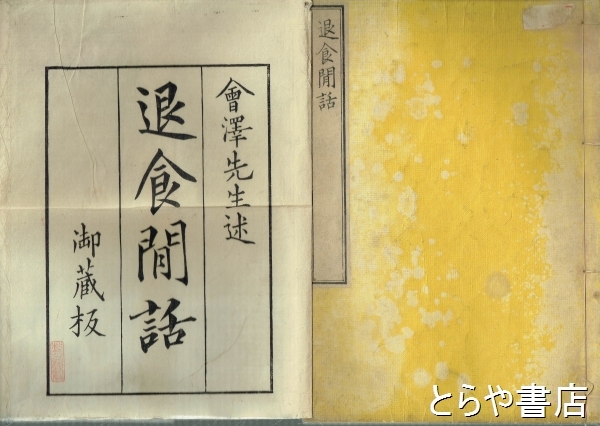 會澤先生述
退食閒話
御蔵板
退食閒話
とらや書店